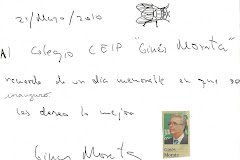 21/Mayo/2010
Al Colegio CEIP "Ginés Morata"
recuerdo de un día memorable en que se
inauguró
les deseo lo mejor
Ginés Morata